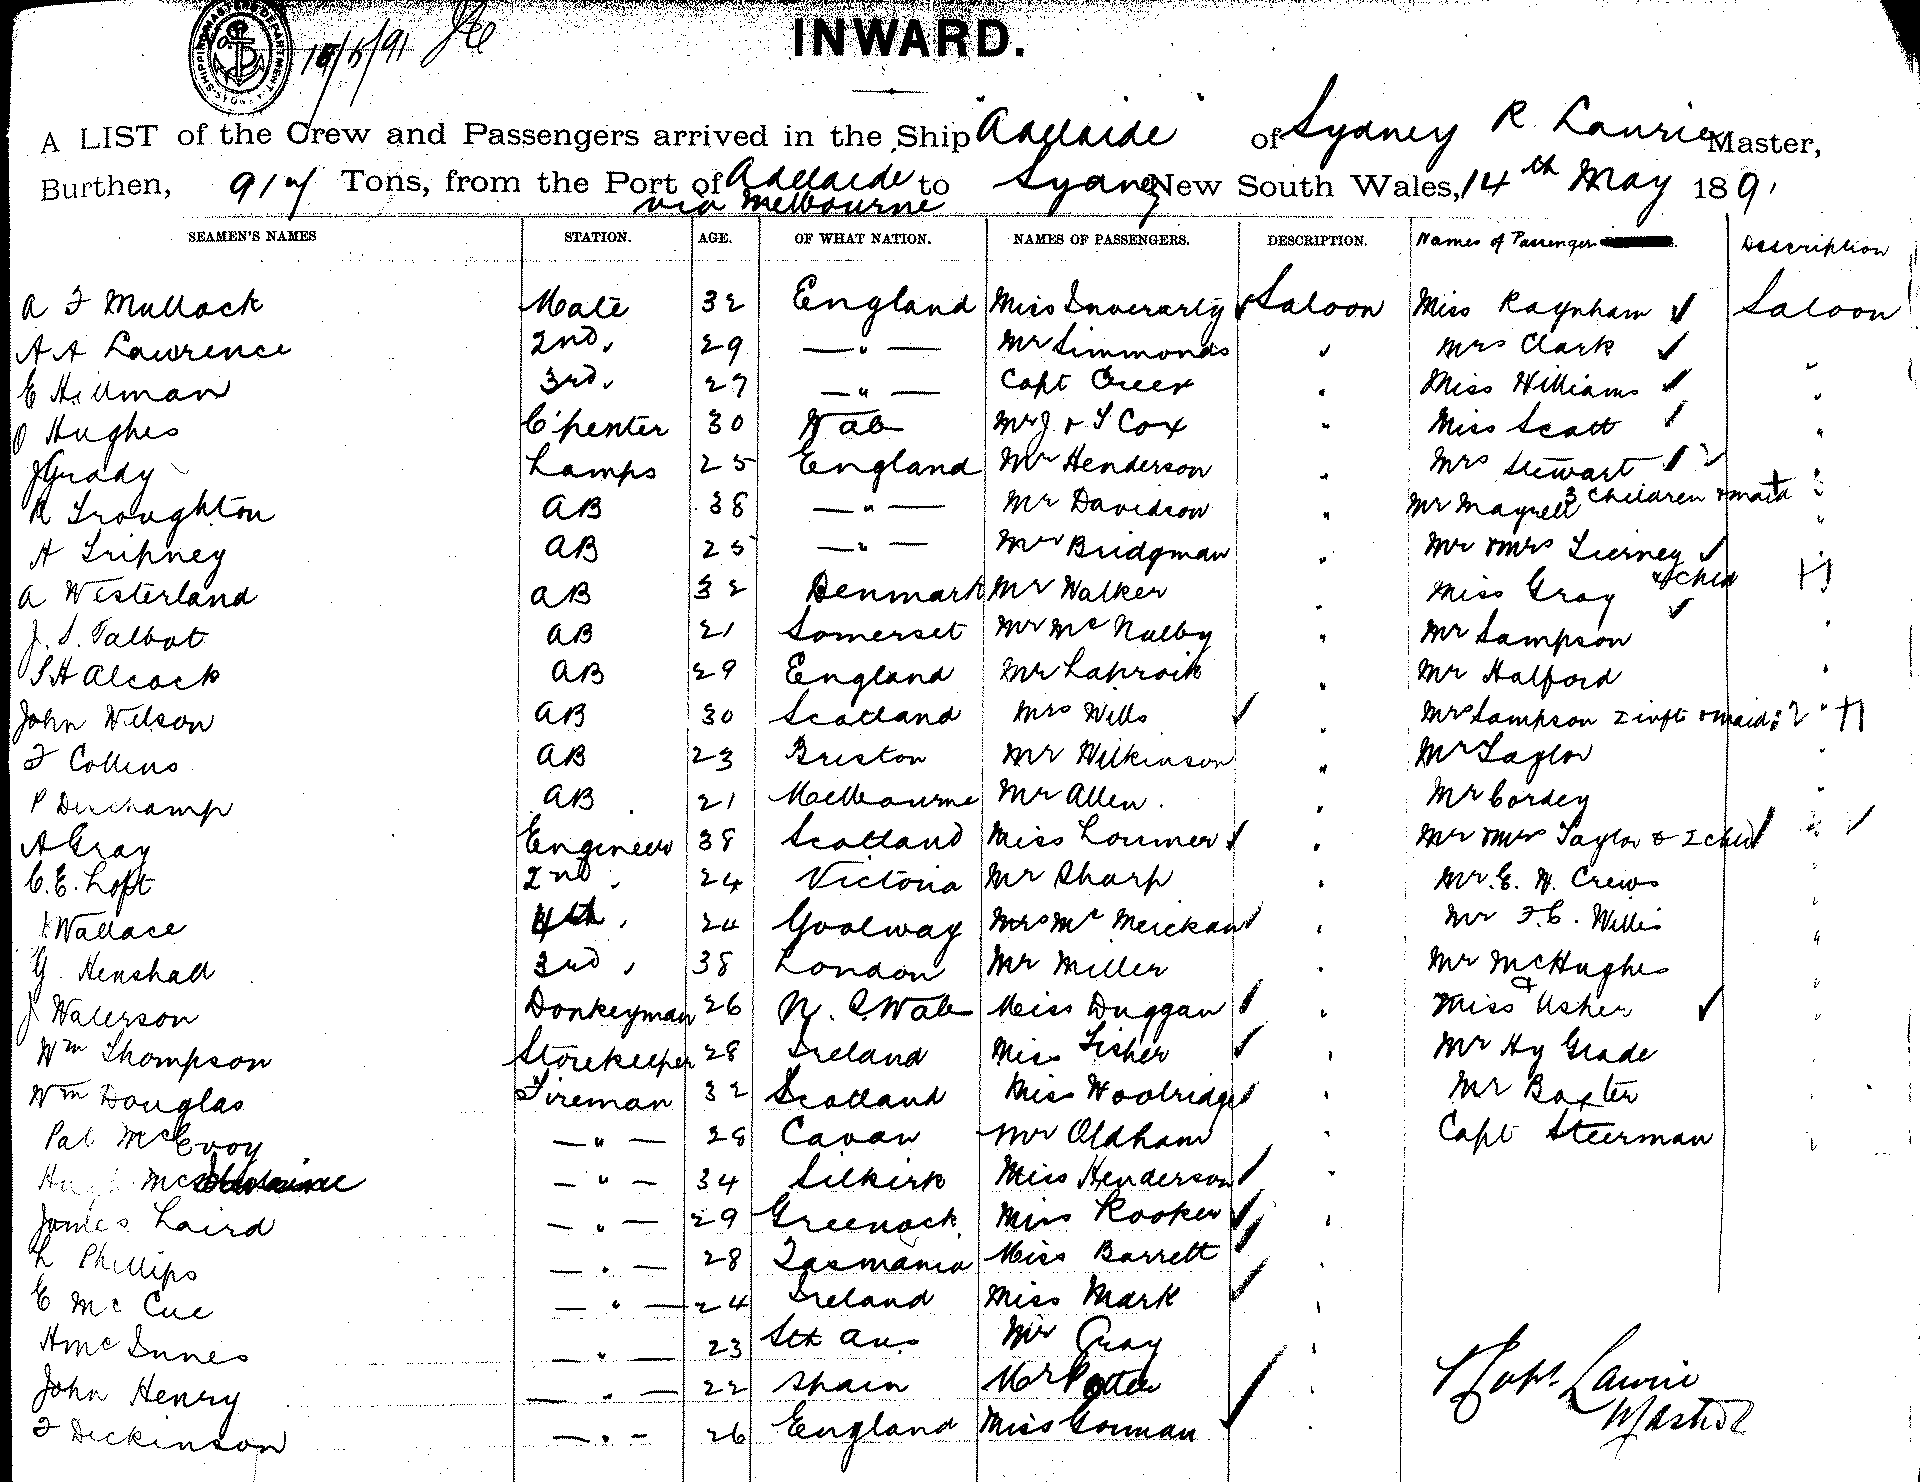 SHIPPING MASTER'S DEPARTMENT
15/5/91
INWARD.
A LIST of the Crew and Passengers arrived in the Ship "Adelaide" of Sydney R Laurie Master,
Burthen, 917 Tons, from the Port of Adelaide to Sydney New South Wales, 14th May 1891
via Melbourne
SEAMEN'S NAMES STATION. AGE. OF WHAT NATION. NAMES OF PASSENGERS. DESCRIPTION. Names of Passenger Description
A F Mullock Mate 32 England Miss Inverarty Saloon Miss Raynham Saloon
A A Lawrence 2nd " 29 — " — Mr Simmonds " Mrs Clark "
E Hillman 3rd " 27 — " — Capt Creer " Miss Williams "
O Hughes C'penter 30 Wales Mr J & S Cox " Miss Scott "
J Grady Lamps 25 England Mr Henderson " Mrs Stewart "
R Troughton AB 38 — " — Mr Davidson " Mr Mayrell 3 children & maid "
A Tripney AB 25 — " — Mr Bridgman " Mr & Mrs Tierney & child
A Westerland AB 32 Denmark Mr Walker " Miss Gray
J. S. Talbot AB 21 Somerset Mr McNulby " Mr Sampson "
S H Alcock AB 29 England Mr Laproik " Mr Halford "
John Wilson AB 30 Scotland Mrs Wills " Mrs Sampson 2 inft & maid "
F Collins AB 23 Briston Mr Wilkinson " Mr Taylor "
P Duchamp AB 21 Melbourne Mr Allen " Mr Cordey "
A Gray Engineer 38 Scotland Miss Lorimer " Mr & Mrs Taylor & 2 child "
C. E. Loft 2nd " 24 Victoria Mr Sharp " Mr. E. W. Crews "
Wallace 4th " 24 Goolway Mrs McMeickan " Mr F. C. Willis "
G. Henshall 3rd " 38 London Mr Miller " Mr McHughes "
J Waterson Donkeyman 26 N. S. Wales Miss Duggan " Miss Usher "
Wm Thompson Storekeeper 28 Ireland Miss Fisher " Mr Hy Grade
Wm Douglas Fireman 32 Scotland Miss Woolridge " Mr Baxter "
Pat McEvoy — " — 28 Cavan Mr Oldham " Capt Steerman "
Hugh — " — 34 Silkirk Miss Henderson "
James Laird — " — 29 Greenock Miss Rooker "
L Phillips — " — 28 Tasmania Miss Barrett "
E McCue — " — 24 Ireland Miss Mark "
H McInnes — " — 23 Sth Aus Mr Gray "
John Henry — " — 22 Spain Mr Potter " Robt. Laurie
F Dickinson — " — 26 England Miss Gorman " Master